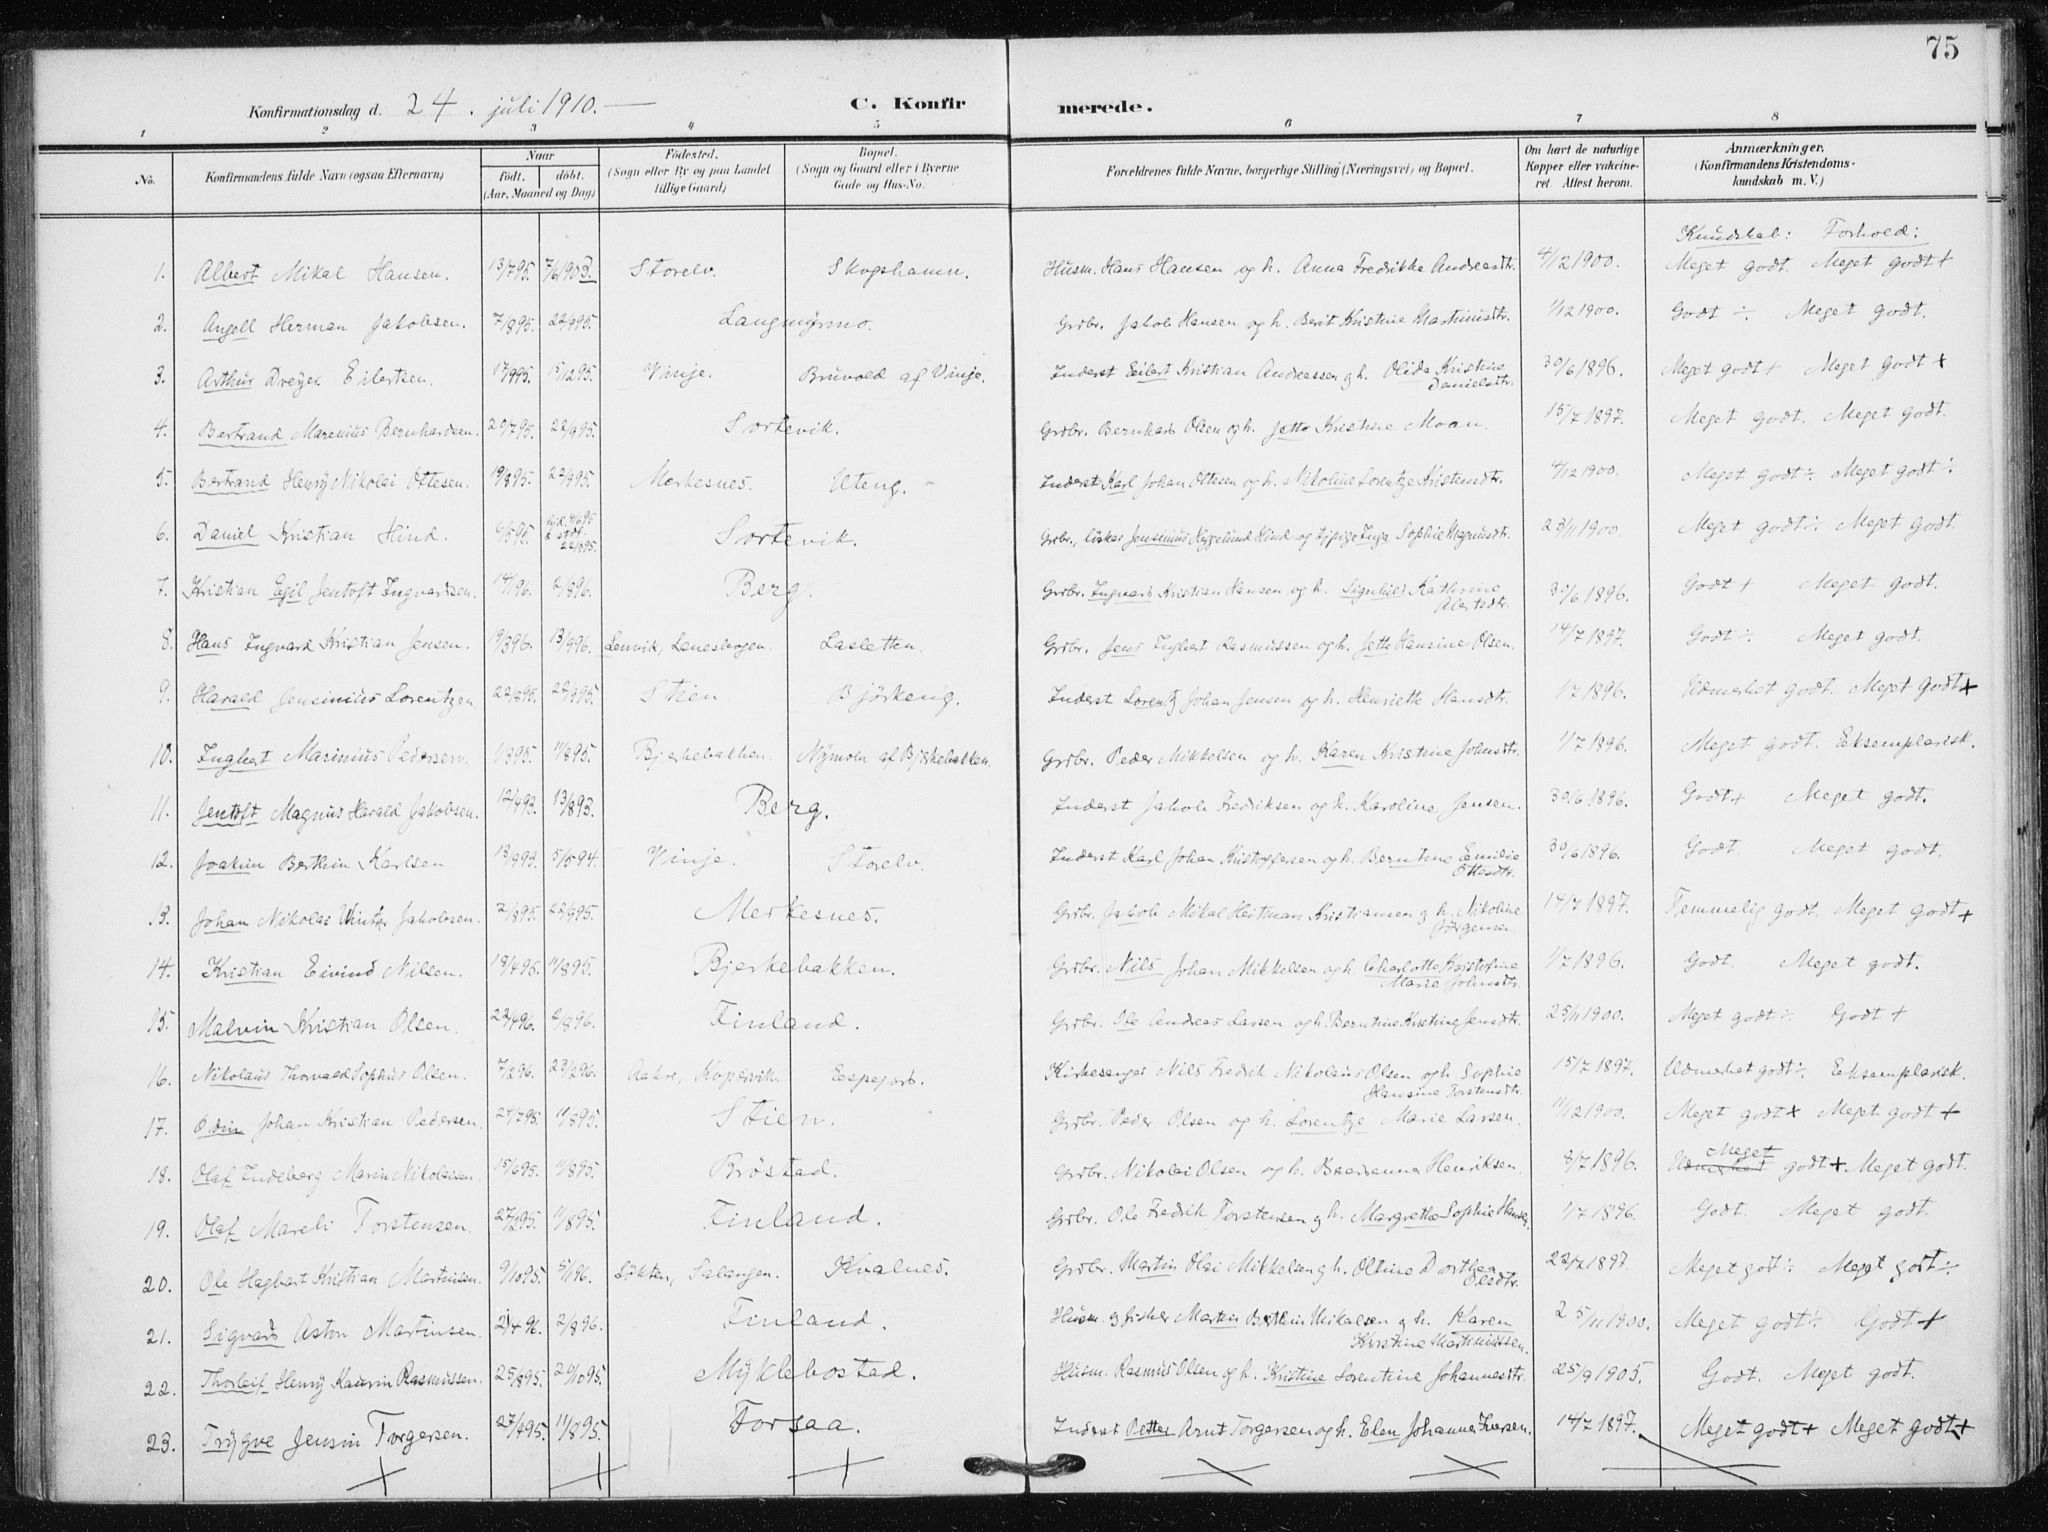 75
Konfirmationsdag d. 24. juli 1910. — C. Konfirmerede.
1 2 3 4 5 6 7 8
No. Konfirmandens fulde Navn (ogsaa Efternavn) Naar födt. döbt. (Aar, Maaned og Dag) Födested. (Sogn eller By og paa Landet tillige Gaard) Bopæl. (Sogn og Gaard eller i Byerne Gade og Hus-No. Forældrenes fulde Navne, borgerlige Stilling (Næringsvei) og Bopæl. Om havt de naturlige Kopper eller vakcineret. Attest herom. Anmærkninger. (Konfirmandens Kristendomskundskab m. V.)
Kundskab: Forhold:
1. Albert Mikal Hansen. 13/7 95. 7/6 1903 Storelv. Skogshamn. Husm. Hans Hansen og h. Anna Fredrikke Andreasdtr. 4/12 1900. Meget godt. Meget godt +
2. Angell Herman Jakobsen. 7/8 95. 22/9 95. Langmyrmo. Grdbr. Jakob Hansen og h. Berit Kristine Martinusdtr. 1/12 1900. Godt ÷. Meget godt.
3. Arthur Dreyer Eilertsen. 17/9 95. 15/12 95. Vinje. Bruvold af Vinje. Inderst Eilert Kristian Andreassen og h. Olida Kristine Danielsdtr. 30/6 1896. Meget godt + Meget godt +
4. Bertrand Marenius Bernhardsen. 20/7 95. 22/9 95. Sortevik. Grdbr. Bernhard Olsen og h. Jette Kristine Moan. 15/7 1897. Meget godt. Meget godt.
5. Bertrand Henry Nikolai Ottesen. 19/8 95. 22/9 95. Mærkesnes. Uteng. – Inderst Karl Johan Ottesen og h. Nikoline Lorentze Kristensdtr. 4/12 1900. Meget godt ÷. Meget godt ÷
6. Daniel Kristian Hind. Sortevik. Grdbr., fisker Jensinius Hind og Inga Sophie Magnusdtr. 23/11 1900. Meget godt ÷ Meget godt.
7. Kristian Egil Jentoft Ingvardsen. 14/1 96. 2/8 96. Berg. Grdbr. Ingvard Kristian Hansen og h. Signhild Kathrine 30/6 1896. Godt + Meget godt.
8. Hans Ingvard Kristian Jensen. 19/3 96. 13/9 96. Lenvik, Lanesbogen. Lasletten. Grdbr. Jens Ingbert Rasmussen og h. Jette Hansine Olsen. 14/7 1897. Godt ÷. Meget godt.
9. Harald Jensinius Lorentzen. 22/8 95. 22/9 95. Stien Bjørkeng. Inderst Lorentz Johan Jensen og h. Henriette Hansdtr. 1/7 1896. Udmerket godt. Meget godt +
10. Ingbert Marinius Pedersen. 1/3 95. 11/8 95. Bjerkebakken. Nymoln af Bjerkebakken. Grdbr. Peder Mikkelsen og h. Karen Kristine Johnsdtr. 1/7 1896. Meget godt. Eksemplarisk.
11. Jentoft Magnus Harald Jakobsen. 12/4 93. 13/8 93. Berg. Inderst Jakob Fredriksen og h. Karoline Jensen. 30/6 1896. Godt + Meget godt.
12. Joakim Berthin Karlsen. 13/9 93. 5/5 94. Vinje. Storelv. Inderst Karl Johan Kristoffersen og h. Berntine Emilie Ottesdtr. 30/6 1896. Godt. Meget godt.
13. Johan Nikolai Winter Jakobsen. 2/8 95. 22/9 95. Merkesnes. Grdbr. Jakob Mikal Heitman Kristiansen og h. Nikoline Jørgensen. 14/7 1897. Temmelig godt. Meget godt +
14. Kristian Eivind Nilsen. 18/4 95. 11/8 95. Bjerkebakken. Grdbr. Nils Johan Mikkelsen og h. Charlotte Kristofine Marie Johnsdtr. 1/7 1896. Godt. Meget godt.
15. Malvin Kristian Olsen. 22/4 96. 2/8 96. Finland. Grdbr. Ole Andreas Larsen og h. Berntine Kristine Jensdtr. 25/11 1900. Meget godt ÷. Godt +
16. Nikolaus Thorvald Sophus Olsen. 7/2 96. 23/2 96. Aakre, Kopervik. Espejord. Kirkesanger Nils Fredrik Nikolaus Olsen og h. Sophie Hansine Torstensdtr. 15/7 1897. Udmerket godt ÷. Eksemplarisk.
17. Odin Johan Kristian Pedersen. 24/7 95. 11/8 95. Stien. Grdbr. Peder Olsen og h. Lorentze Marie Larsen. 11/12 1900. Meget godt + Meget godt +
18. Olaf Indeberg Marin Nikolaisen. 15/6 95. 11/8 95. Brøstad. Grdbr. Nikolai Olsen og h. Henriksen. 8/7 1896. Udmerket Meget godt +. Meget godt.
19. Olaf Mareli Torstensen. 27/2 95. 11/8 95. Finland. Grdbr. Ole Fredrik Torstensen og h. Margrethe Sophie Hansen. 1/7 1896. Godt. Meget godt.
20. Ole Hagbart Kristian Martinsen. 9/10 95. 5/1 96. Løkten, Salangen. Kvalnes. Grdbr. Martin Olai Mikkelsen og h. Oltine Dorthea Olesdtr. 22/7 1897. Meget godt ÷ Meget godt ÷
21. Sigvard Aston Martinsen. 21/4 96. 2/8 96. Finland. Husm. og fisker Martin Berthin Mikalsen og h. Karen Kristine Martinussen. 25/11 1900. Meget godt ÷ Godt +
22. Thorleif Henry Kaurin Rasmussen. 25/8 95. 20/10 95. Myklebostad. Husm. Rasmus Olsen og h. Kristine Lorentine Johannesdtr. 25/9 1905. Godt. Meget godt.
23. Trygve Jensin Torgersen. 27/4 95. 11/8 95. Forsaa. Inderst Petter Arnt Torgersen og h. Elen Johanna Iversen. 14/7 1897. Meget godt + Meget godt +